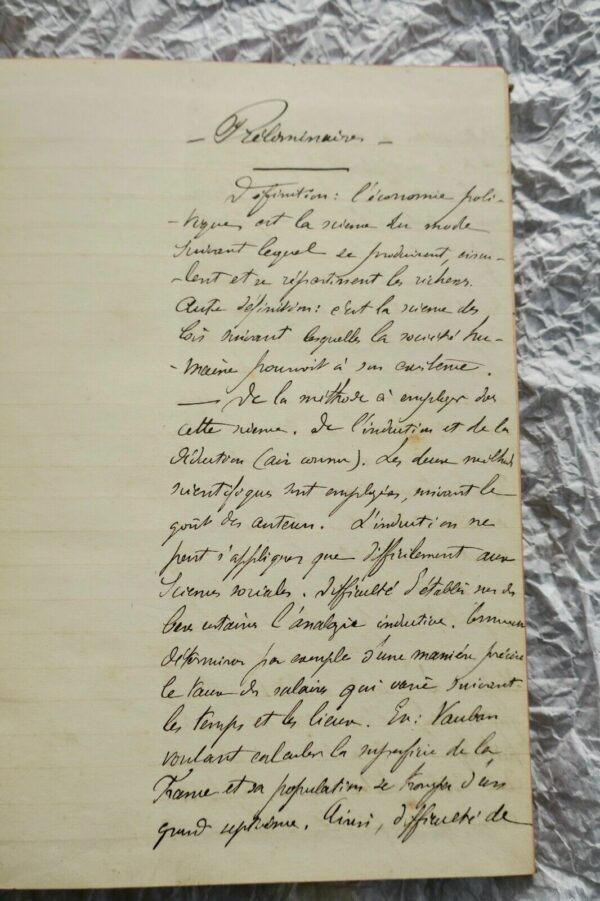 - Préliminaires -
Définition : l'économie poli-
-tique est la science du mode
suivant lequel se produisent, circu-
-lent et se répartissent les richesses.
Autre définition : c'est la science des
lois suivant lesquelles la société hu-
-maine pourvoit à son existence.
— De la méthode à employer dans
cette science. De l'induction et de la
déduction (air connu). Les deux méthodes
scientifiques sont employées, suivant le
goût des auteurs. L'induction ne
peut s'appliquer que difficilement aux
Sciences sociales. Difficulté d'établir sur des
bases certaines l'analyse inductive. Comment
déterminer par exemple d'une manière précise
le taux des salaires qui varie suivant
les temps et les lieux. Ex : Vauban
voulant calculer la superficie de la
France et sa population se trompa d'un
grand septième. Ainsi, difficulté de